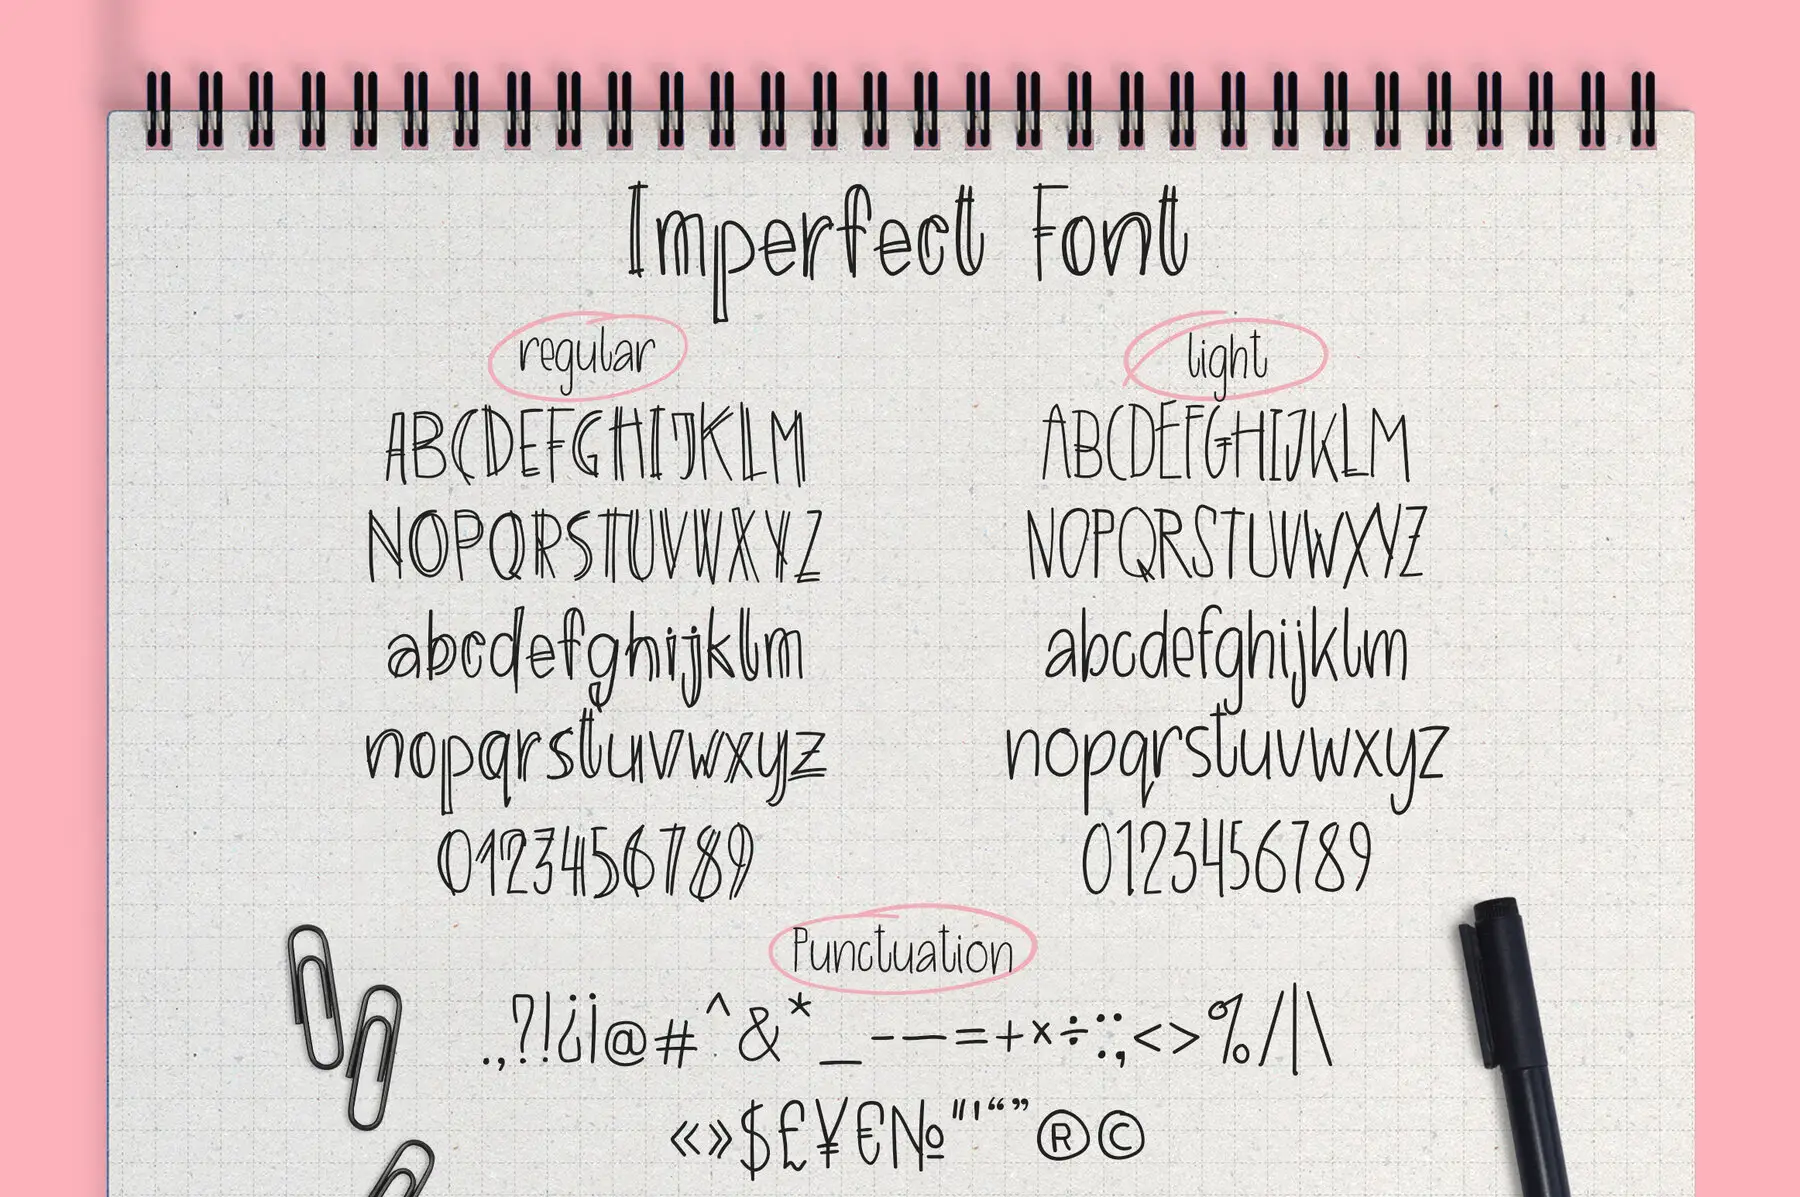 Imperfect Font
regular
light
ABCDEFGHIJKLM
ABCDEFGHIJKLM
NOPQRSTUVWXYZ
NOPQRSTUVWXYZ
abcdefghijklm
abcdefghijklm
nopqrstuvwxyz
nopqrstuvwxyz
0123456789
0123456789
Punctuation
.,?!¿¡@#^&*_-—=+×÷:;<>%/|\
«»$£¥€№"'“”®©